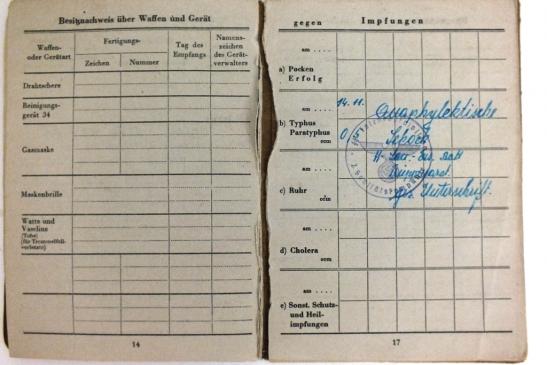 Besitznachweis über Waffen und Gerät
Waffen-
oder Gerätart
Fertigungs-
Zeichen
Nummer
Tag des
Empfangs
Namens-
zeichen
des Gerät-
verwalters
Drahtschere
Reinigungs-
gerät 34
Gasmaske
Maskenbrille
Watte und
Vaseline
(Tube)
(für Trommelfell-
verletzte)
14
gegen
Impfungen
am ....
a) Pocken
Erfolg
am ....
14. 11.
b) Typhus
Paratyphus
ccm
0,5
Anaphylektische
Schock
am ....
c) Ruhr
ccm
gez. Unterschrift.
am ....
d) Cholera
ccm
am ....
e) Sonst. Schutz-
und Heil-
impfungen
17